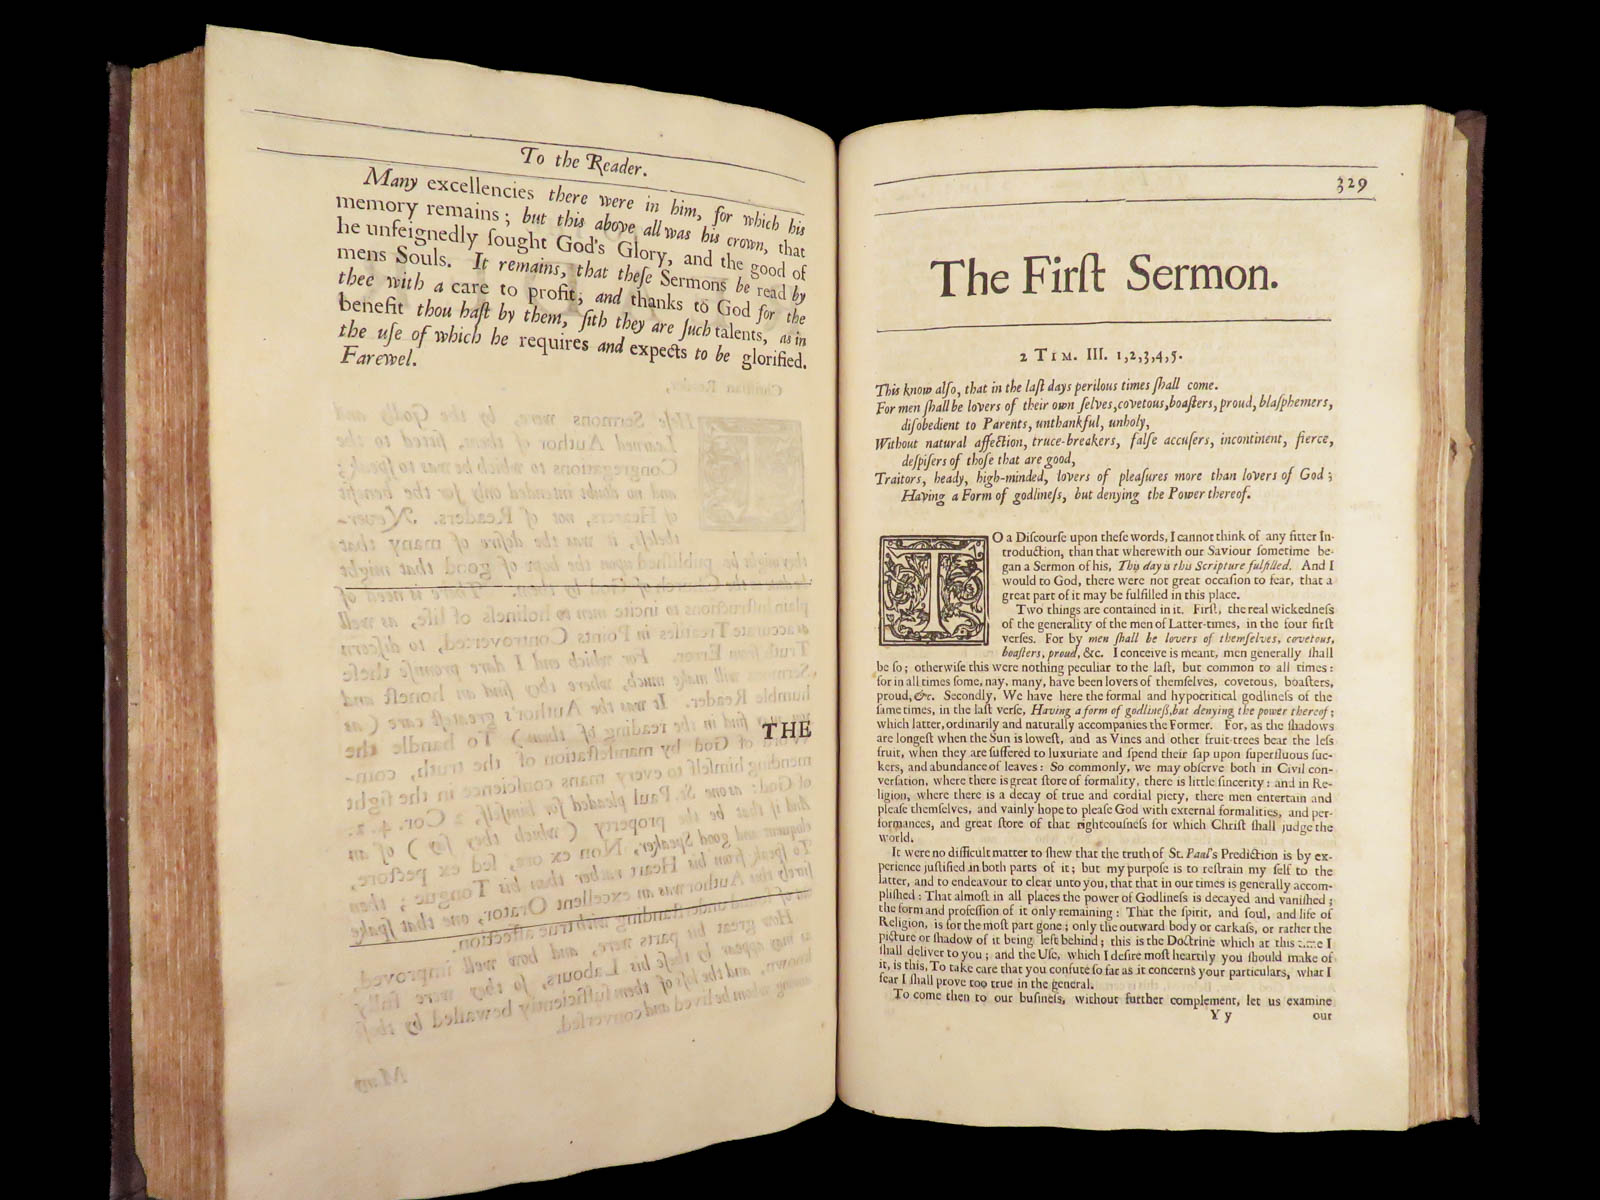 To the Reader.
Many excellencies there were in him, for which his
memory remains; but this above all was his crown, that
he unfeignedly ſought God's Glory, and the good of
mens Souls. It remains, that theſe Sermons be read by
thee with a care to profit; and thanks to God for the
benefit thou haſt by them, ſith they are ſuch talents, as in
the uſe of which he requires and expects to be glorified.
Farewel.
THE
329
The Firſt Sermon.
2 TIM. III. 1,2,3,4,5.
This know alſo, that in the laſt days perilous times ſhall come.
For men ſhall be lovers of their own ſelves, covetous, boaſters, proud, blaſphemers,
diſobedient to Parents, unthankful, unholy,
Without natural affection, truce-breakers, falſe accuſers, incontinent, fierce,
deſpiſers of thoſe that are good,
Traitors, heady, high-minded, lovers of pleaſures more than lovers of God;
Having a Form of godlineſs, but denying the Power thereof.
TO a Diſcourſe upon theſe words, I cannot think of any fitter In-
troduction, than that wherewith our Saviour ſometime be-
gan a Sermon of his, This day is this Scripture fulfilled. And I
would to God, there were not great occaſion to fear, that a
great part of it may be fulfilled in this place.
Two things are contained in it. Firſt, the real wickedneſs
of the generality of the men of Latter-times, in the four firſt
verſes. For by men ſhall be lovers of themſelves, covetous,
boaſters, proud, &c. I conceive is meant, men generally ſhall
be ſo; otherwiſe this were nothing peculiar to the laſt, but common to all times:
for in all times ſome, nay, many, have been lovers of themſelves, covetous, boaſters,
proud, &c. Secondly, We have here the formal and hypocritical godlineſs of the
ſame times, in the laſt verſe, Having a form of godlineſs, but denying the power thereof;
which latter, ordinarily and naturally accompanies the Former. For, as the ſhadows
are longeſt when the Sun is loweſt, and as Vines and other fruit-trees bear the leſs
fruit, when they are ſuffered to luxuriate and ſpend their ſap upon ſuperfluous ſuc-
kers, and abundance of leaves: So commonly, we may obſerve both in Civil con-
verſation, where there is great ſtore of formality, there is little ſincerity: and in Re-
ligion, where there is a decay of true and cordial piety, there men entertain and
pleaſe themſelves, and vainly hope to pleaſe God with external formalities, and per-
formances, and great ſtore of that righteouſneſs for which Chriſt ſhall judge the
world.
It were no difficult matter to ſhew that the truth of St. Paul's Prediction is by ex-
perience juſtified in both parts of it; but my purpoſe is to reſtrain my ſelf to the
latter, and to endeavour to clear unto you, that that in our times is generally accom-
pliſhed: That almoſt in all places the power of Godlineſs is decayed and vaniſhed;
the form and profeſſion of it only remaining: That the ſpirit, and ſoul, and life of
Religion, is for the moſt part gone; only the outward body or carkaſs, or rather the
picture or ſhadow of it being left behind; this is the Doctrine which at this time I
ſhall deliver to you; and the Uſe, which I deſire moſt heartily you ſhould make of
it, is this, To take care that you confute ſo far as it concerns your particulars, what I
fear I ſhall prove too true in the general.
To come then to our buſineſs, without further complement, let us examine
Y y
our